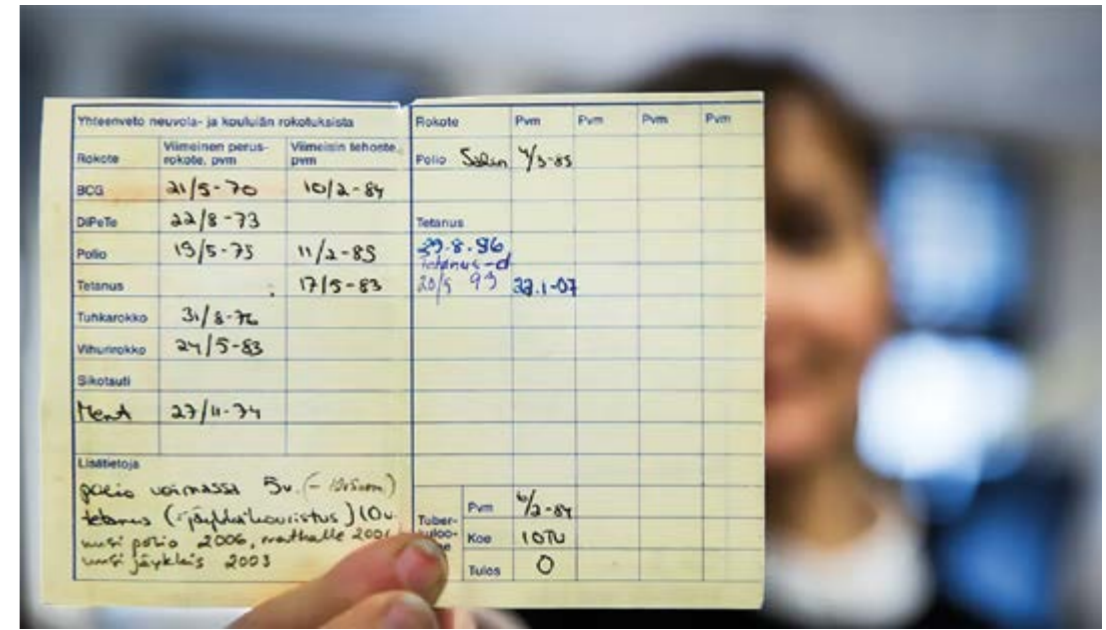 Yhteenveto neuvola- ja kouluiän rokotuksista
Rokote Viimeinen perus-rokote, pvm Viimeisin tehoste, pvm
BCG 21/5-70 10/2-84
DiPeTe 22/8-73
Polio 19/5-75 11/2-85
Tetanus 17/5-83
Tuhkarokko 31/8-76
Vihurirokko 24/5-83
Sikotauti
27/11-74
Lisätietoja
polio voimassa 5v.
tetanus (=jäykkäkouristus) 10v
uusi polio 2006, matkalle
uusi jäykkis 2003
Rokote Pvm Pvm Pvm Pvm
Polio Salin
Tetanus
29.8.86
Tetanus-d
20/5 93 22.1-07
Pvm 6/2-84
Koe 10TU
Tulos 0